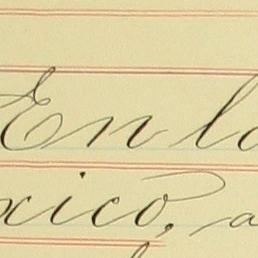 En la
xico, a